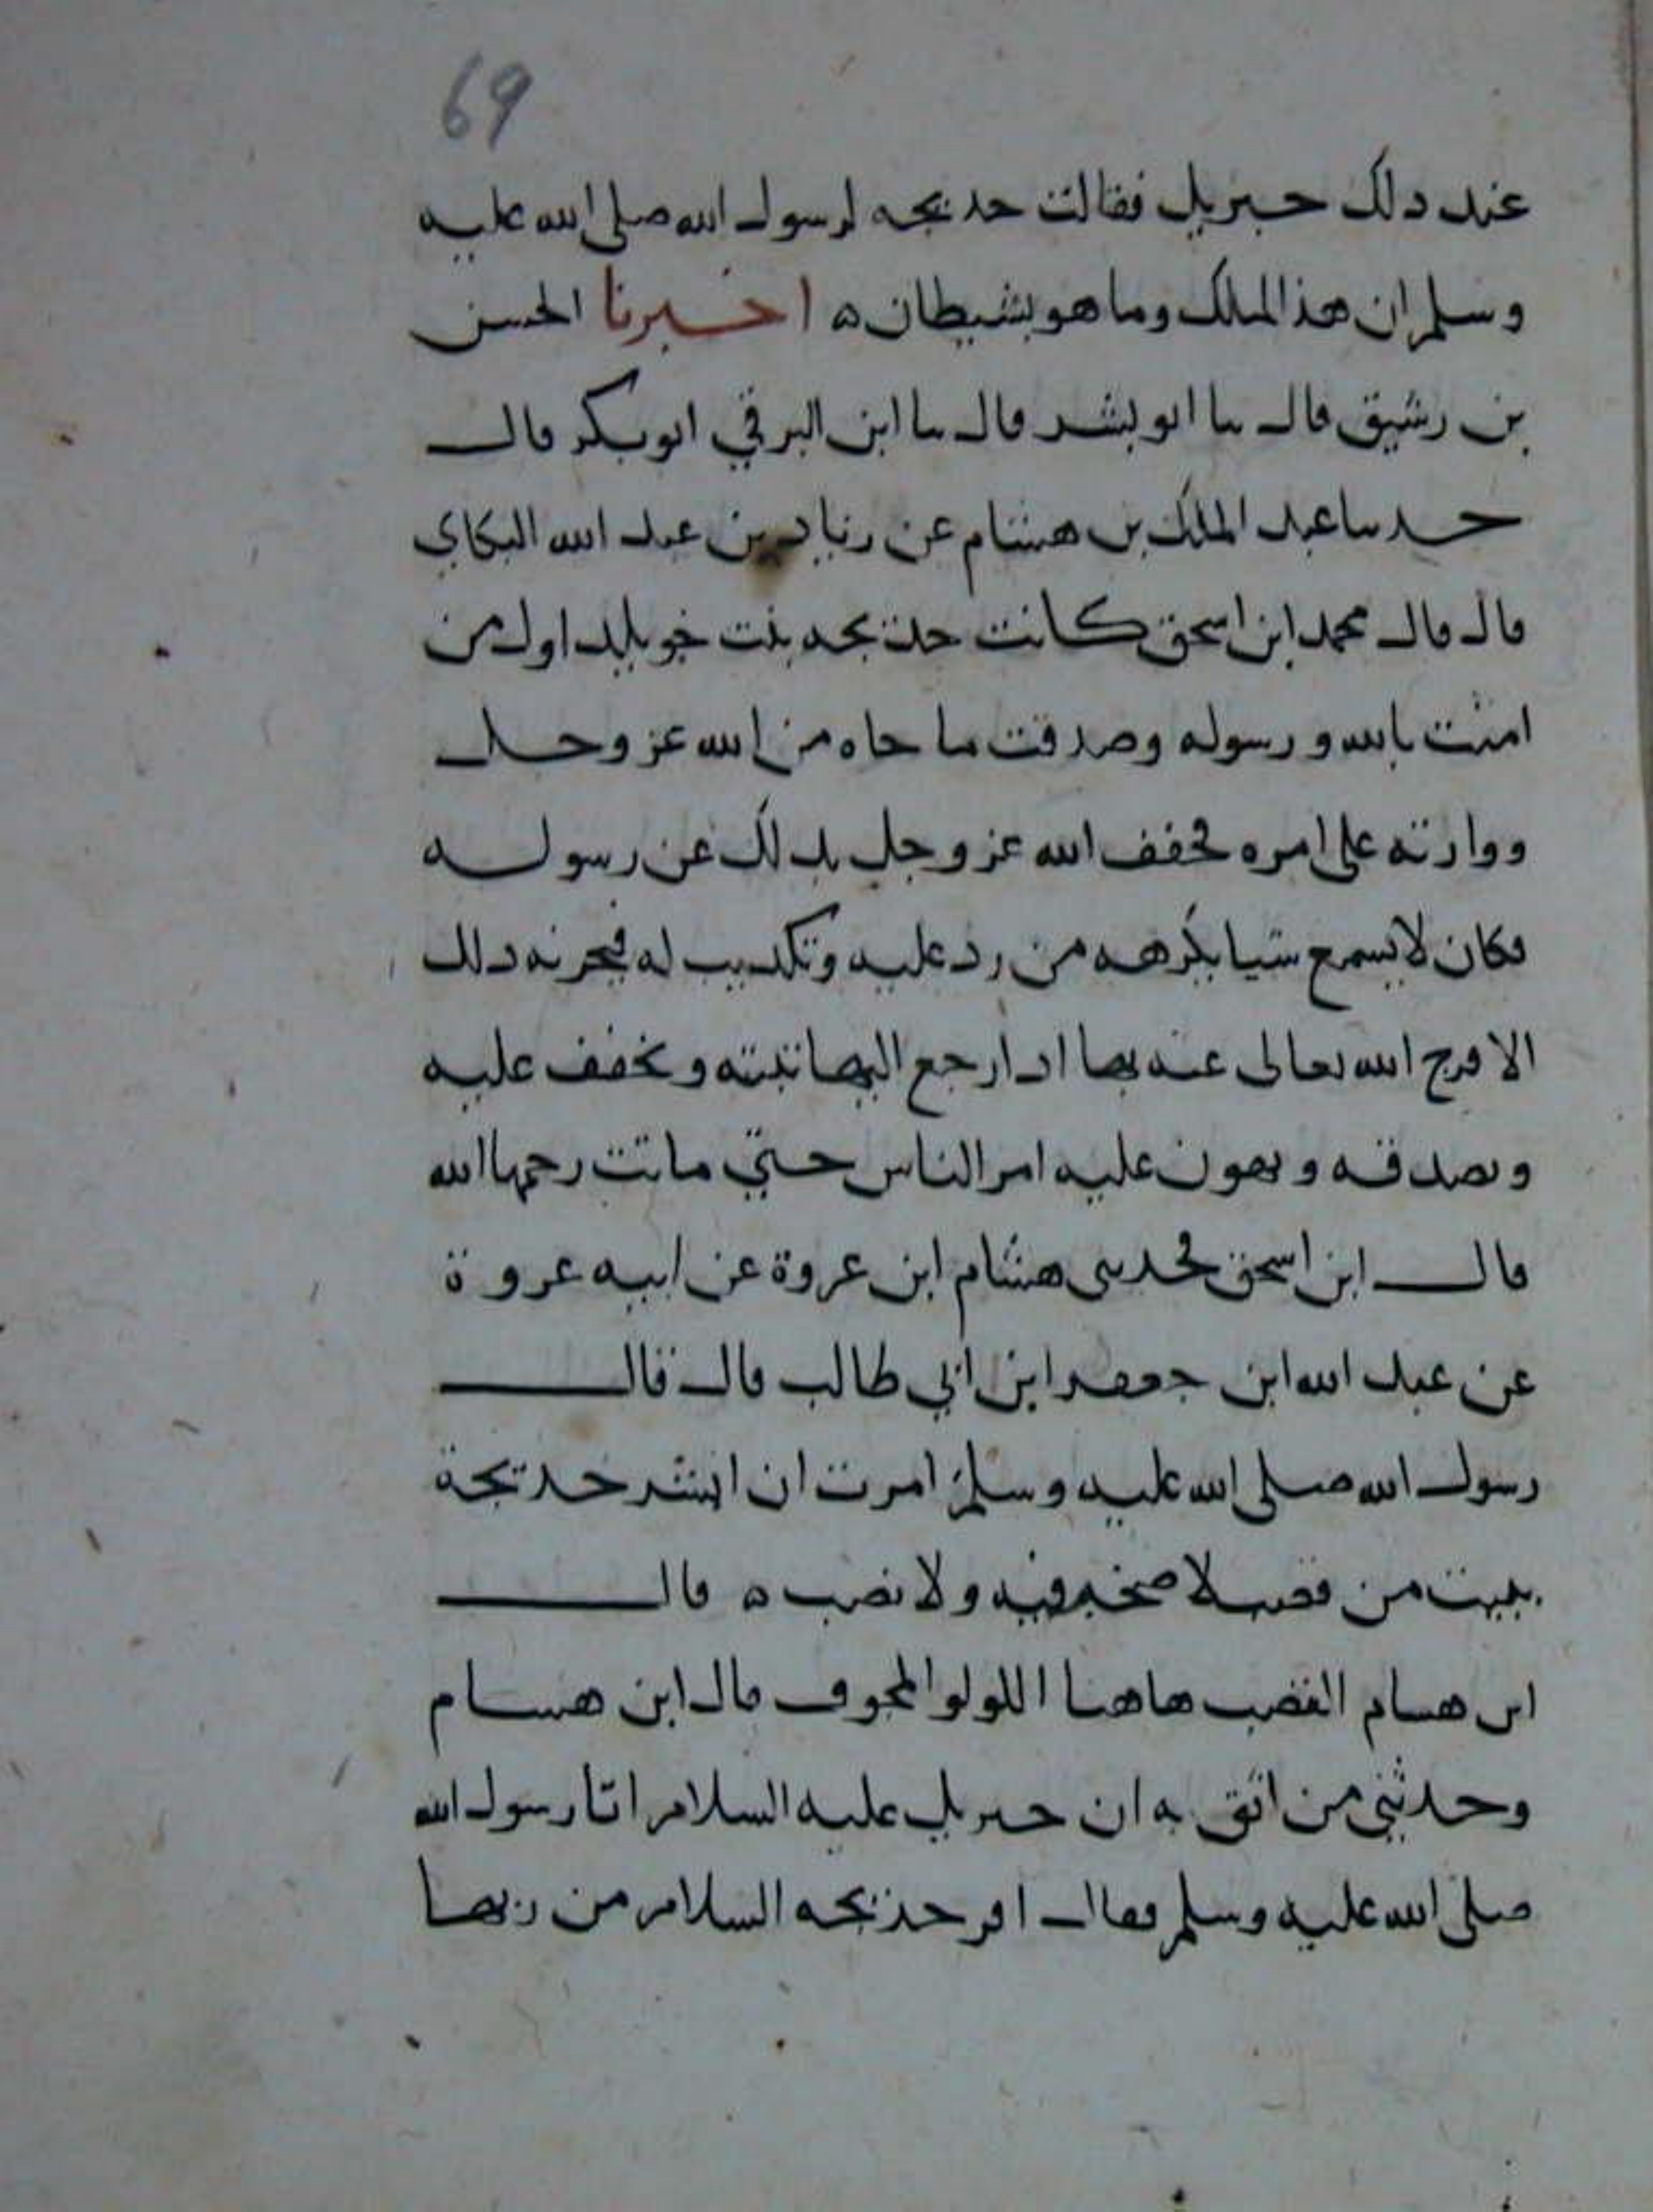 69
عند دلك حبريل فقالت خديجه لرسول الله صلى الله عليه
وسلم ان هذ الملك وما هو بشيطان ه اخبرنا الحسن
بن رشيق قال سا ابو بشر قال سا ابن البرقي ابو بكر قال
حدسا عبد الملك بن هشام عن زياد بن عبد الله البكاي
قال قال محمد ابن اسحق كانت خديجه بنت خويلد اول من
امنت بالله ورسوله وصدقت ما جاه من الله عز وجل
ووازرته على امره فخفف الله عز وجل بدلك عن رسوله
فكان لا يسمع شيا يكرهه من رد عليه وتكديب له فيحزنه دلك
الا فرج الله تعالى عنه بها ادا رجع اليها تثبته وتخفف عليه
وتصدقه وتهون عليه امر الناس حتي ماتت رحمها الله
قال ابن اسحق فحدثنى هشام ابن عروة عن ابيه عروة
عن عبد الله ابن جعفر ابن ابي طالب قال قال
رسول الله صلى الله عليه وسلم امرت ان ابشر خديجة
ببيت من قصب لا صخب فيه ولا نصب ه قال
ابن هشام القصب هاهنا اللولو المجوف قال ابن هشام
وحدثني من اثق به ان جبريل عليه السلام اتا رسول الله
صلى الله عليه وسلم فقال اقر خديجه السلام من ربها